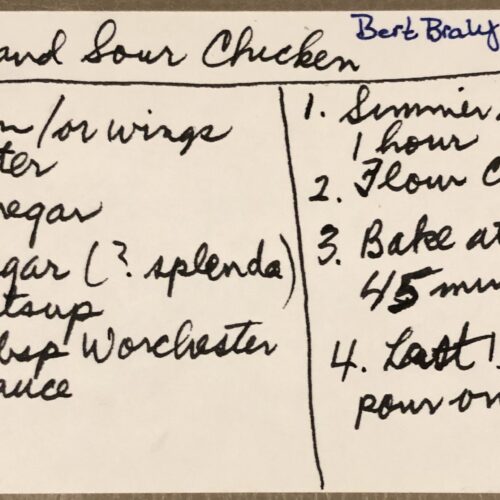 Bert Braly
and Sour Chicken
n/or wings
ter
negar
gar (? splenda)
tsup
bsp Worchester
auce
1. Simmer
1 hour
2. Flour C
3. Bake at
45 min
4. Last 1
pour on